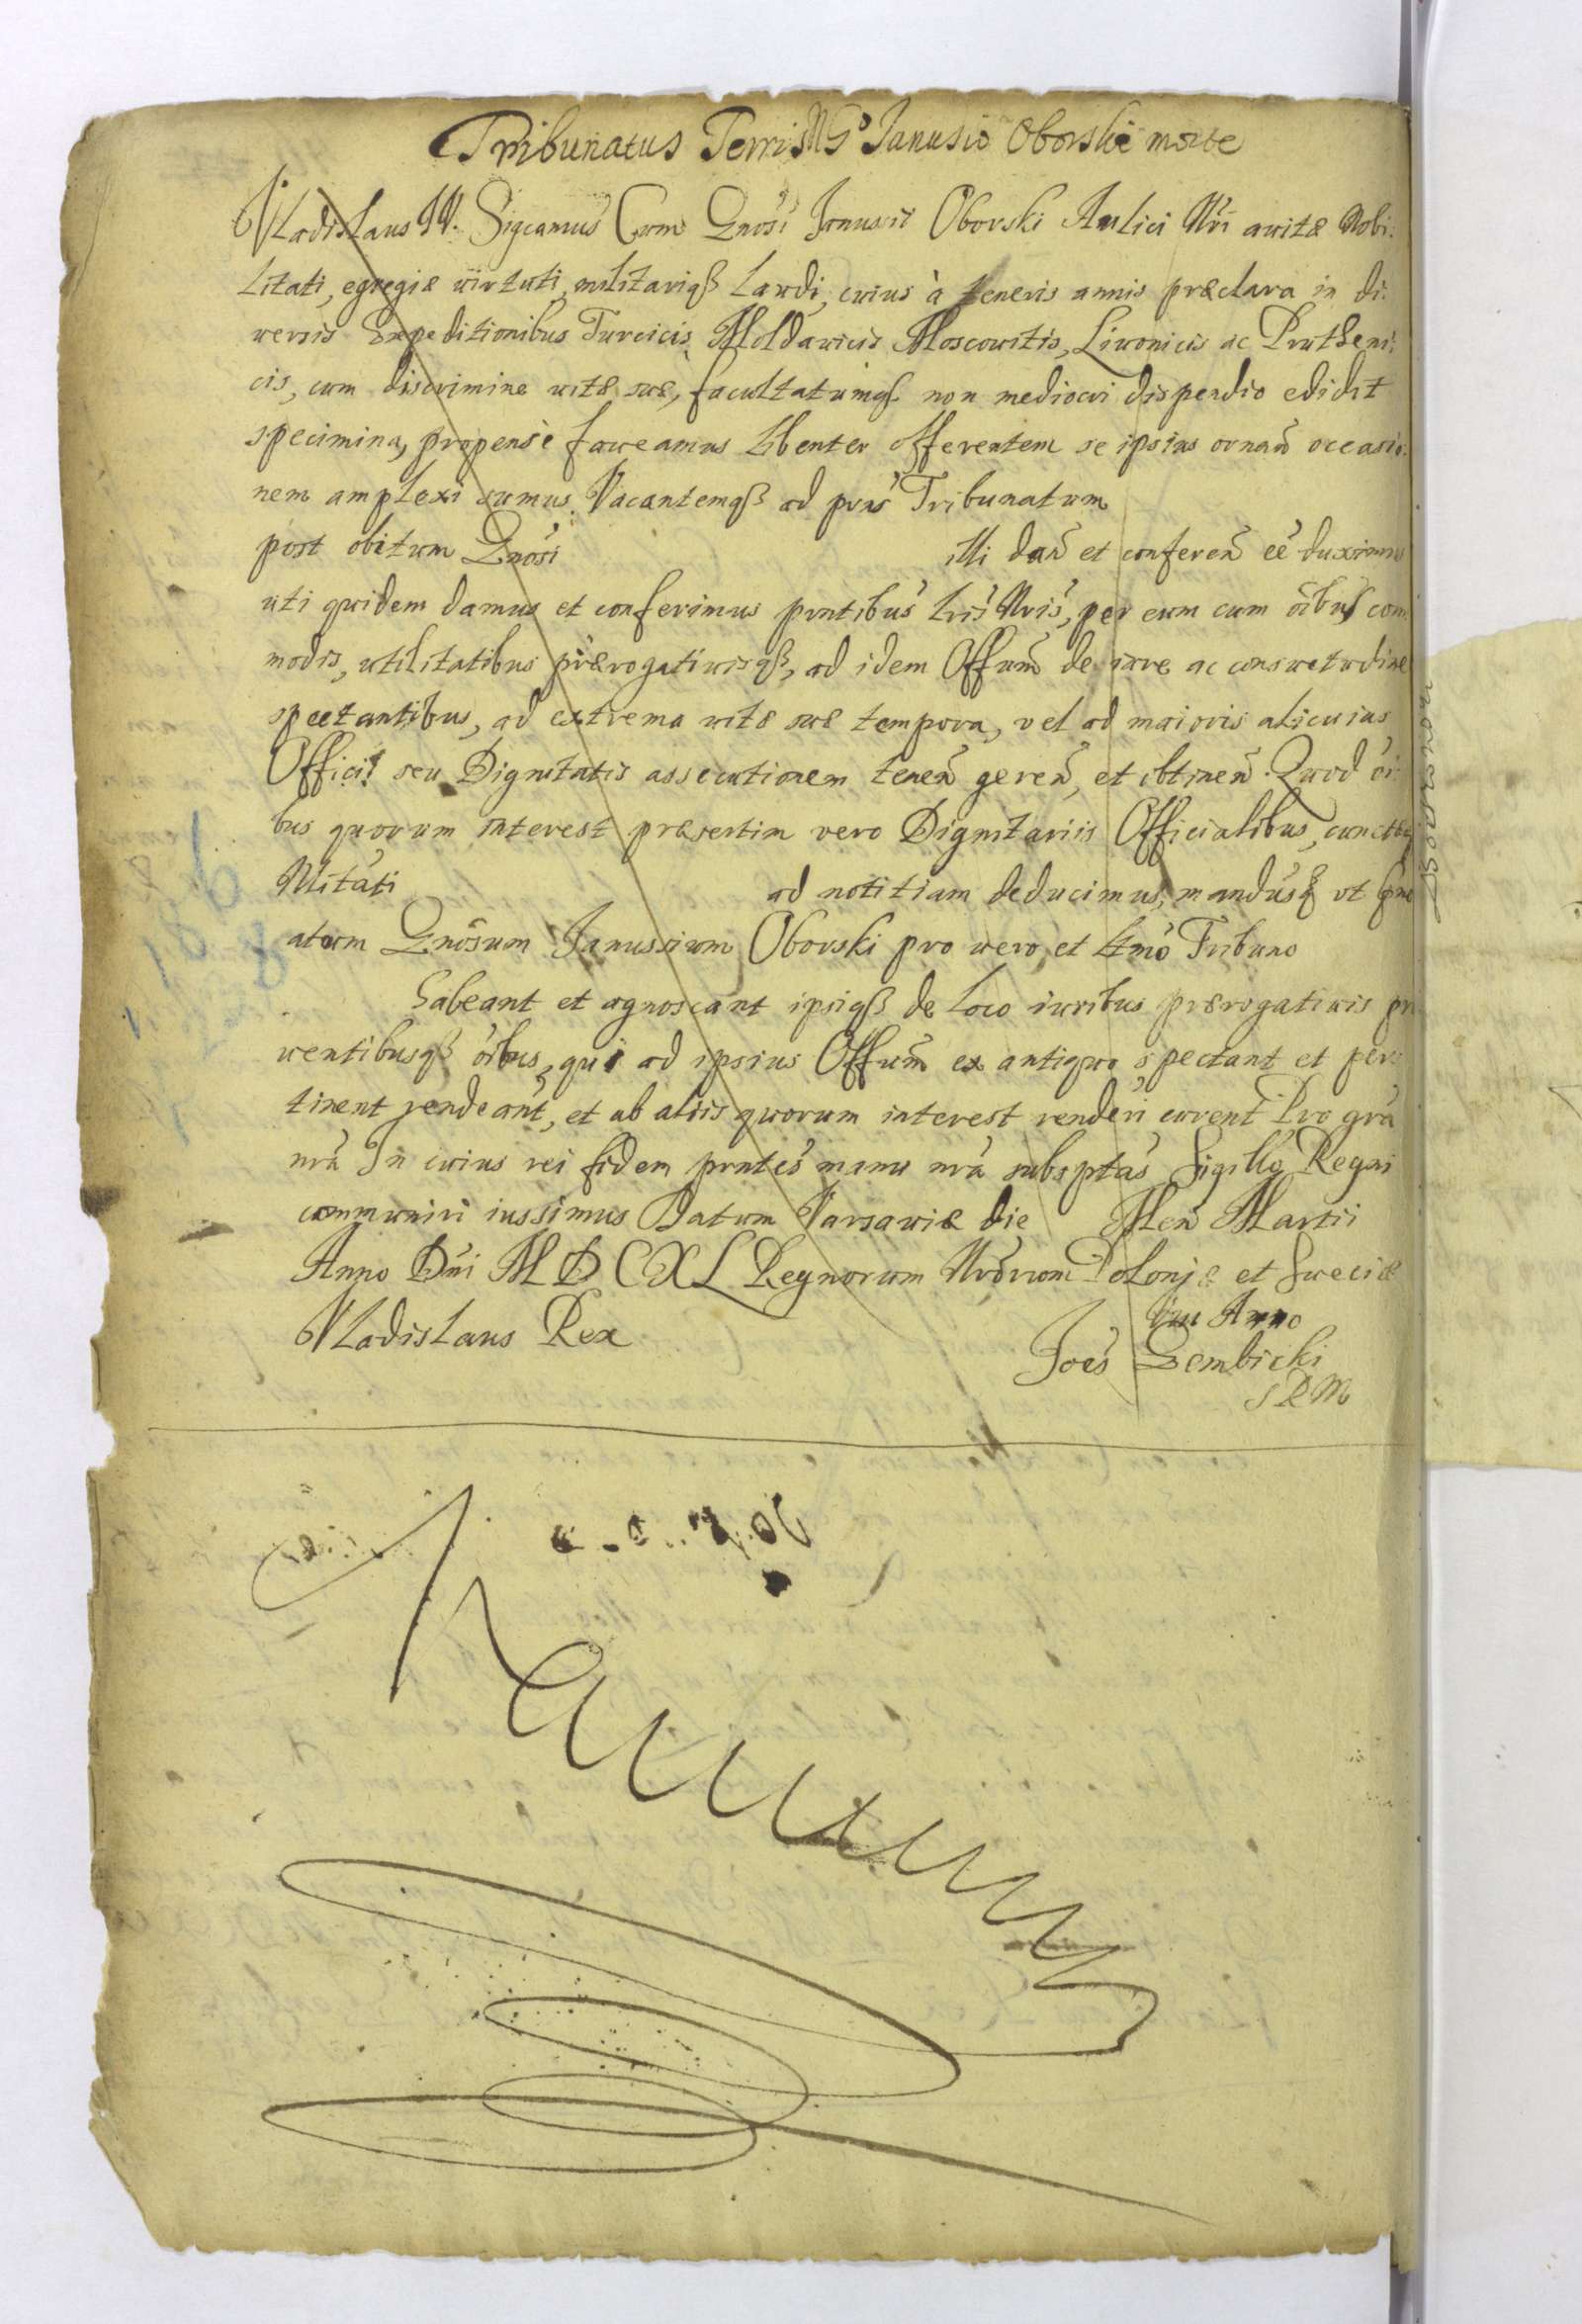 Tribunatus Terris MGo Janusio Oborski morte
Vladislaus IV. Sigcamus Cum Gnosi Janusii Oborski Aulici Nri avitæ Nobi:
litati, egregiæ virtuti, militariqß laudi, cuius à teneris annis præclara in di:
versis Expeditionibus Turcicis, Moldavicis Moscovitis, Livonicis ac Prutheni:
cis, cum discrimine vitæ suæ, facultatumqß non mediocri dispendio edidit
specimina, propensè faveamus libenter offerentem se ipsius ornañ occasio:
nem amplexi sumus. Vacantemqß ad pras Tribunatum
post obitum Gnosi illi dañ et confereñ eé duximus
uti quidem damus et conferimus prntibus Lris Nris, per eum cum oibus com
modis, utilitatibus prærogativisqß, ad idem Offum de iure ac consuetudine
spectantibus, ad extrema vitæ suæ tempora, vel ad maioris alicuius
Officii seu Dignitatis assecutionem teneñ gereñ, et obtineñ. Quod oi:
bus quorum interest præsertim vero Dignitariis Officialibus, cunctæq
Nlitati ad notitiam deducimus, mandusq ut
atum Gnosum Janussium Oborski pro vero et Ltmo Tribuno
habeant et agnoscant ipsiqß de loco iuribus prærogativis pro
ventibusqß oibus, qui ad ipsius Offum ex antiquo spectant et per:
tinent rendeant, et ab aliis quorum interest renderi curent Pro gra
nra In cuius rei fidem prntes manu nra subsptas Sigillo Regni
communiri iussimus Datum Varsaviæ die Meñ Martii
Anno Dni MDCXL Regnorum Nrorum Poloniæ et Sueciæ
Viii Anno
Vladislaus Rex
Joes Gembicki
SRM